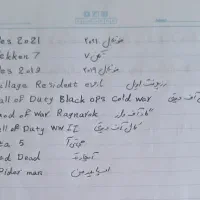 es 2021 فوتبال ۲۰۲۱
ekken 7 تیکن ۷
es 2019 فوتبال ۲۰۱۹
illage Resident evil رزیدنت اویل
all of Duty Black ops cold war کال آف دیوتی
od of war Ragnarok گاد آف وار
all of Duty WW II کال آف دیوتی
ta 5 جی تی آ
ad Dead
pider man اسپایدر من